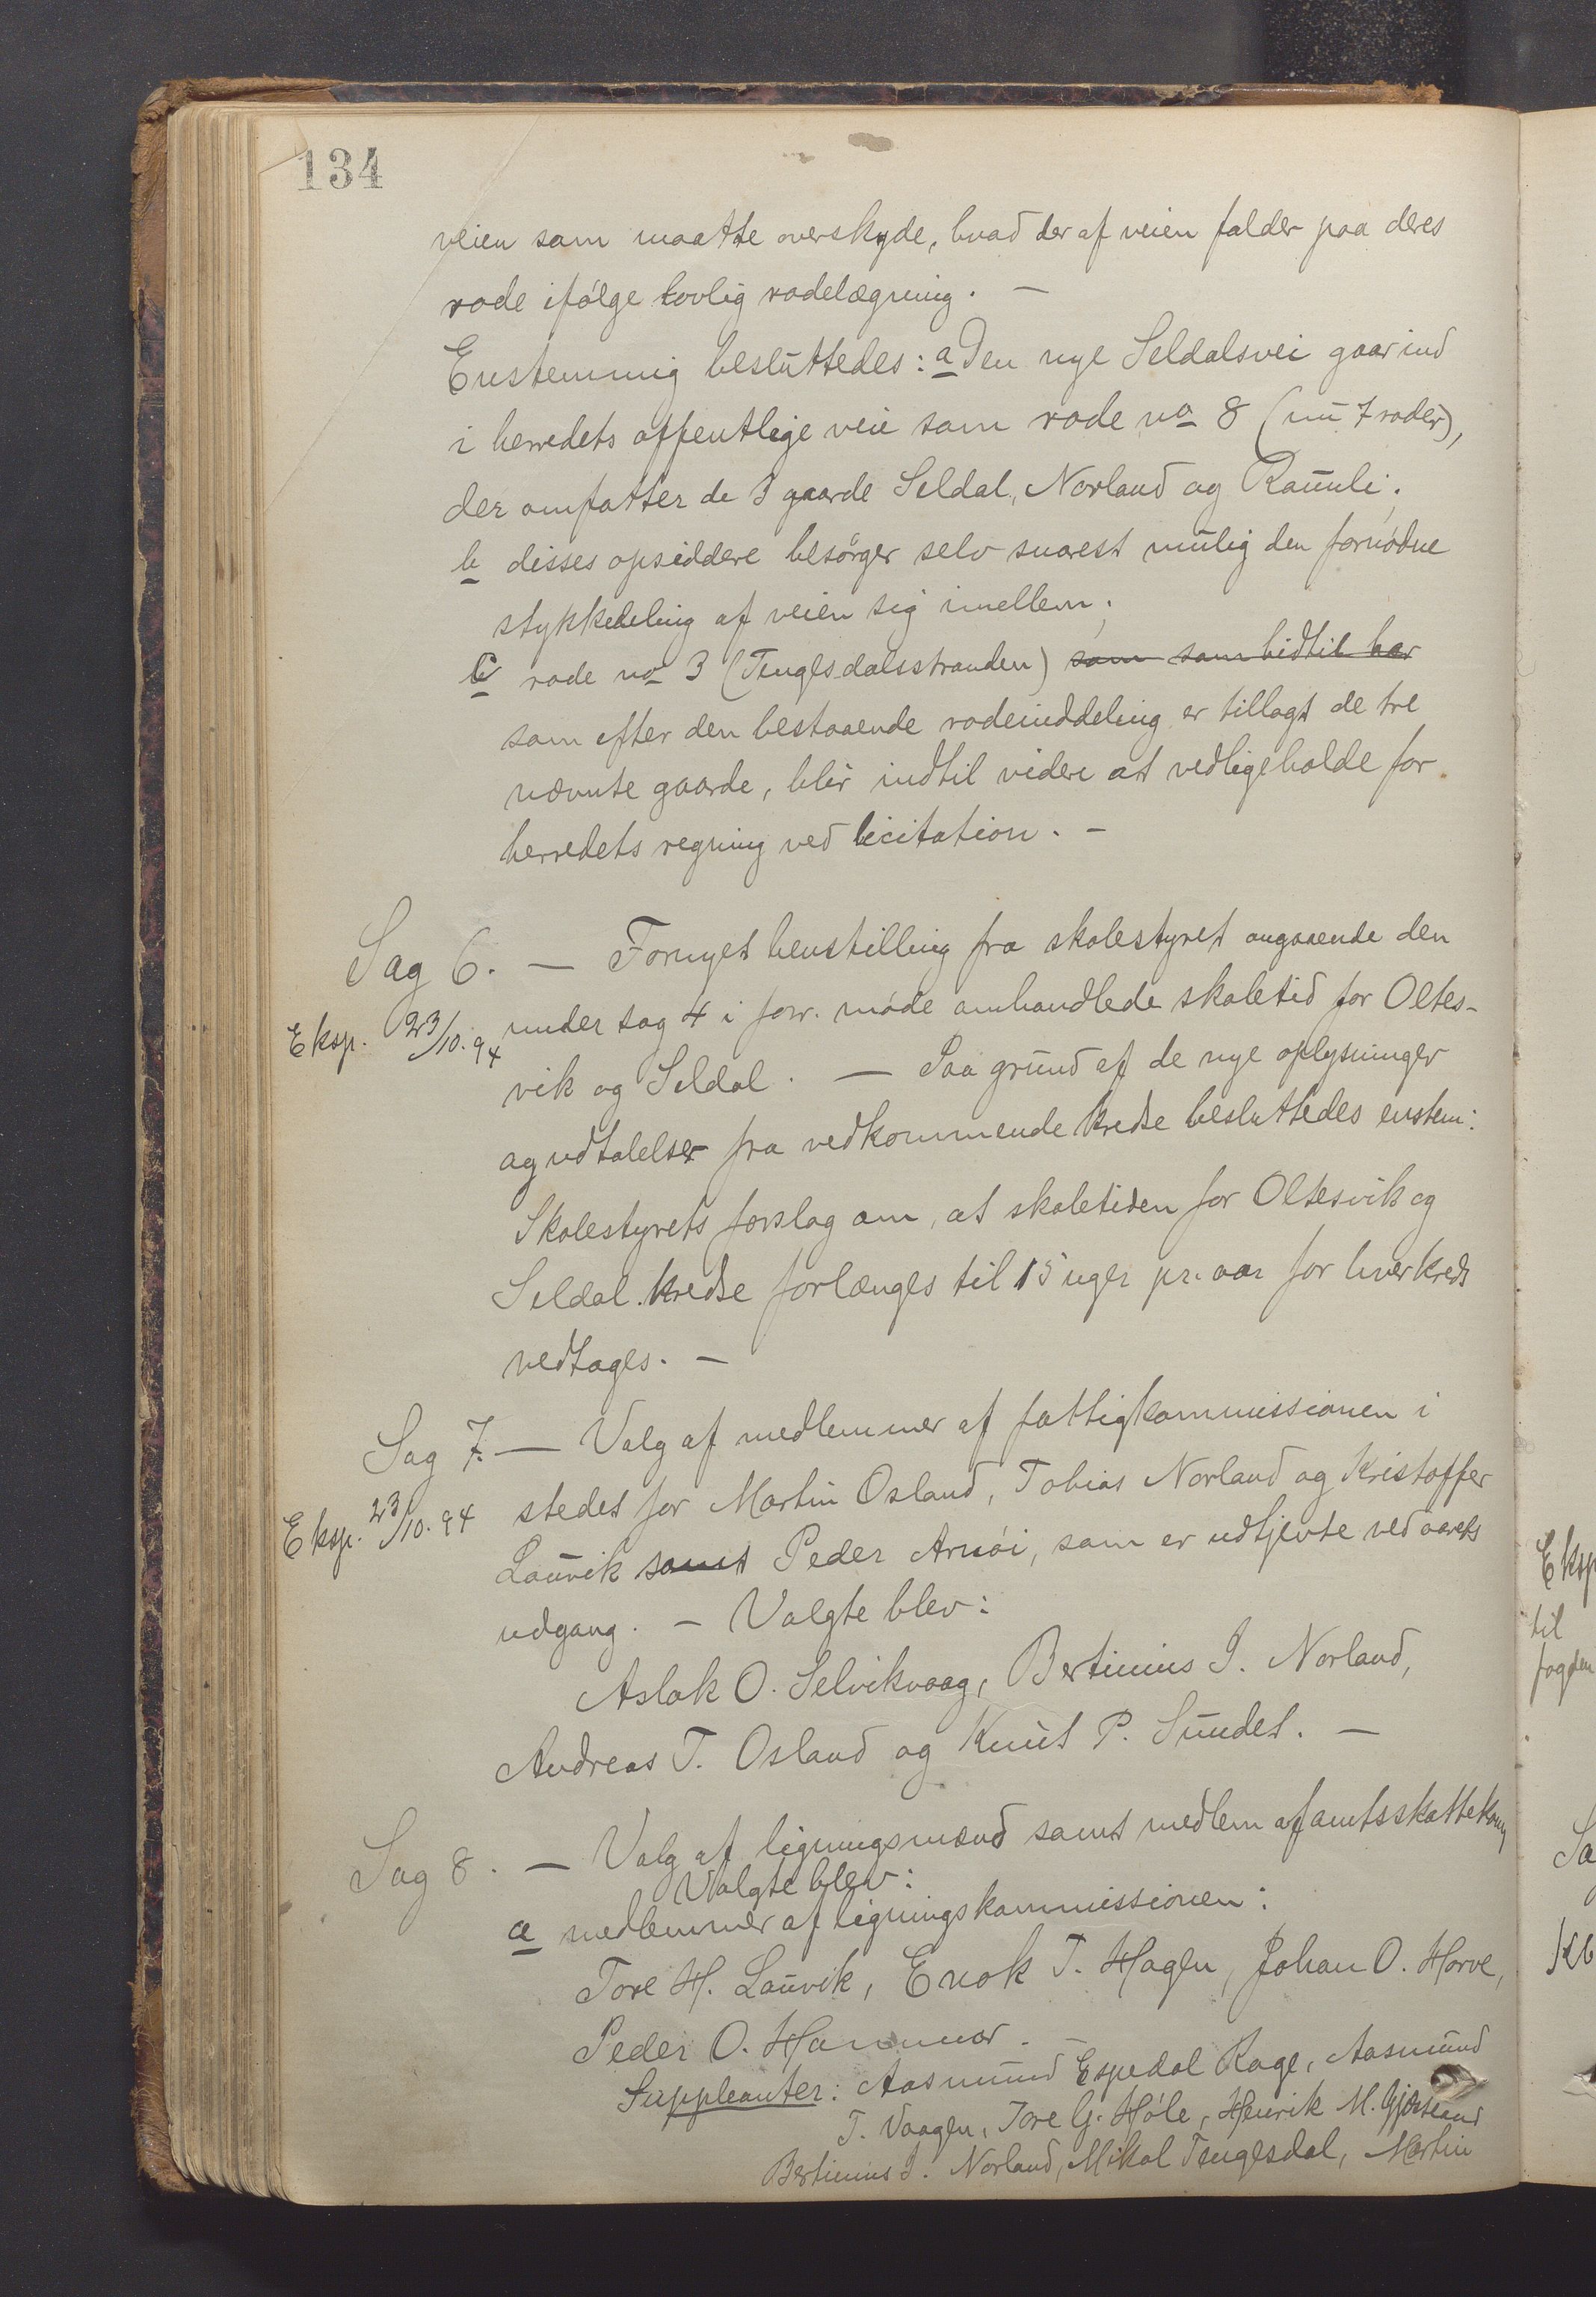 134
veien som maatte overskyde, hvad der af veien falder paa deres
rode ifølge lovlig rodelægning. —
Enstemmig besluttedes: a Den nye Seldalsvei gaar ind
i herredets offentlige veie som rode no 8 (nu 7 roder),
der omfatter de 3 gaarde Seldal, Norland og Raunli;
b disses opsiddere besørger selv snarest mulig den fornødne
stykkedeling af veien sig imellem;
c rode no 3 (Tengesdalsstranden) som som hidtil har
som efter den bestaaende rodeinddeling er tillagt de tre
nævnte gaarde, blir indtil videre at vedligeholde for
herredets regning ved licitation. —
Sag 6. — Fornyet henstilling fra skolestyret angaaende den
Eksp. 23/10.94 under sag 4 i forr. møde omhandlede skoletid for Oltes-
vik og Seldal. — Paa grund af de nye oplysninger
og udtalelser fra vedkommende kredse besluttedes enstem:
Skolestyrets forslag om, at skoletiden for Oltesvik og
Seldal kredse forlænges til 15 uger pr. aar for hver kreds
vedtages. —
Sag 7. — Valg af medlemmer af fattigkommissionen i
Eksp. 23/10.94 stedet for Martin Osland, Tobias Norland og Kristoffer
Lauvik samt Peder Arnøi, som er udtjente ved aarets
udgang. — Valgte blev:
Aslak O. Selvikvaag, Bertinius I. Norland,
Andreas T. Osland og Knut P. Sundet. —
Sag 8. — Valg af ligningsmænd samt medlem af amtsskattekom
Valgte blev:
a medlemmer af ligningskommissionen:
Tore H. Lauvik, Enok T. Hagen, Johan O. Horve,
Peder O. Hammar. —
Suppleanter: Aasmund Espedal Rage, Aasmund
T. Vaagen, Tore G. Høle, Henrik M. Gjøsteand
Bertinius I. Norland, Mikal Tengesdal, Martin
Eksp
til
fogden
Sa